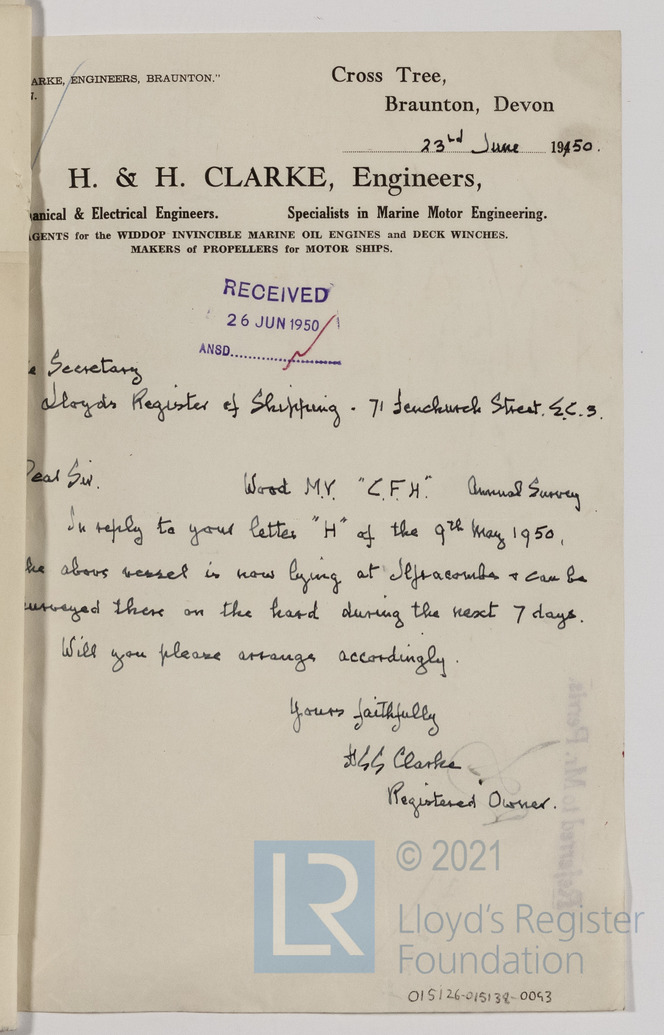 ARKE, ENGINEERS, BRAUNTON."
Cross Tree,
Braunton, Devon
23rd June 1950.
H. & H. CLARKE, Engineers,
anical & Electrical Engineers. Specialists in Marine Motor Engineering.
AGENTS for the WIDDOP INVINCIBLE MARINE OIL ENGINES and DECK WINCHES.
MAKERS of PROPELLERS for MOTOR SHIPS.
RECEIVED
26 JUN 1950
ANSD.
e Secretary
Lloyds Register of Shipping - 71 Fenchurch Street. E.C.3.
Dear Sir. Wood M.V. "C.F.H." Annual Survey
In reply to your letter "H" of the 9th May 1950,
he above vessel is now lying at Ilfracombe & can be
urveyed there on the hard during the next 7 days.
Will you please arrange accordingly.
Yours faithfully
Clarke
Registered Owner.
Referred to Mr. Perris.
LR
© 2021
Lloyd's Register
Foundation
015126-015138-0093